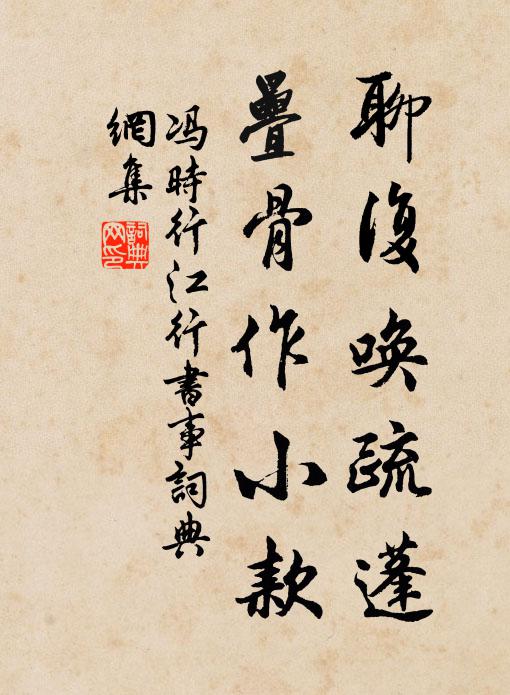 聊復喚疏蓬
疊骨作小款
馮時行江行書事詞典
網集
詞典
网印